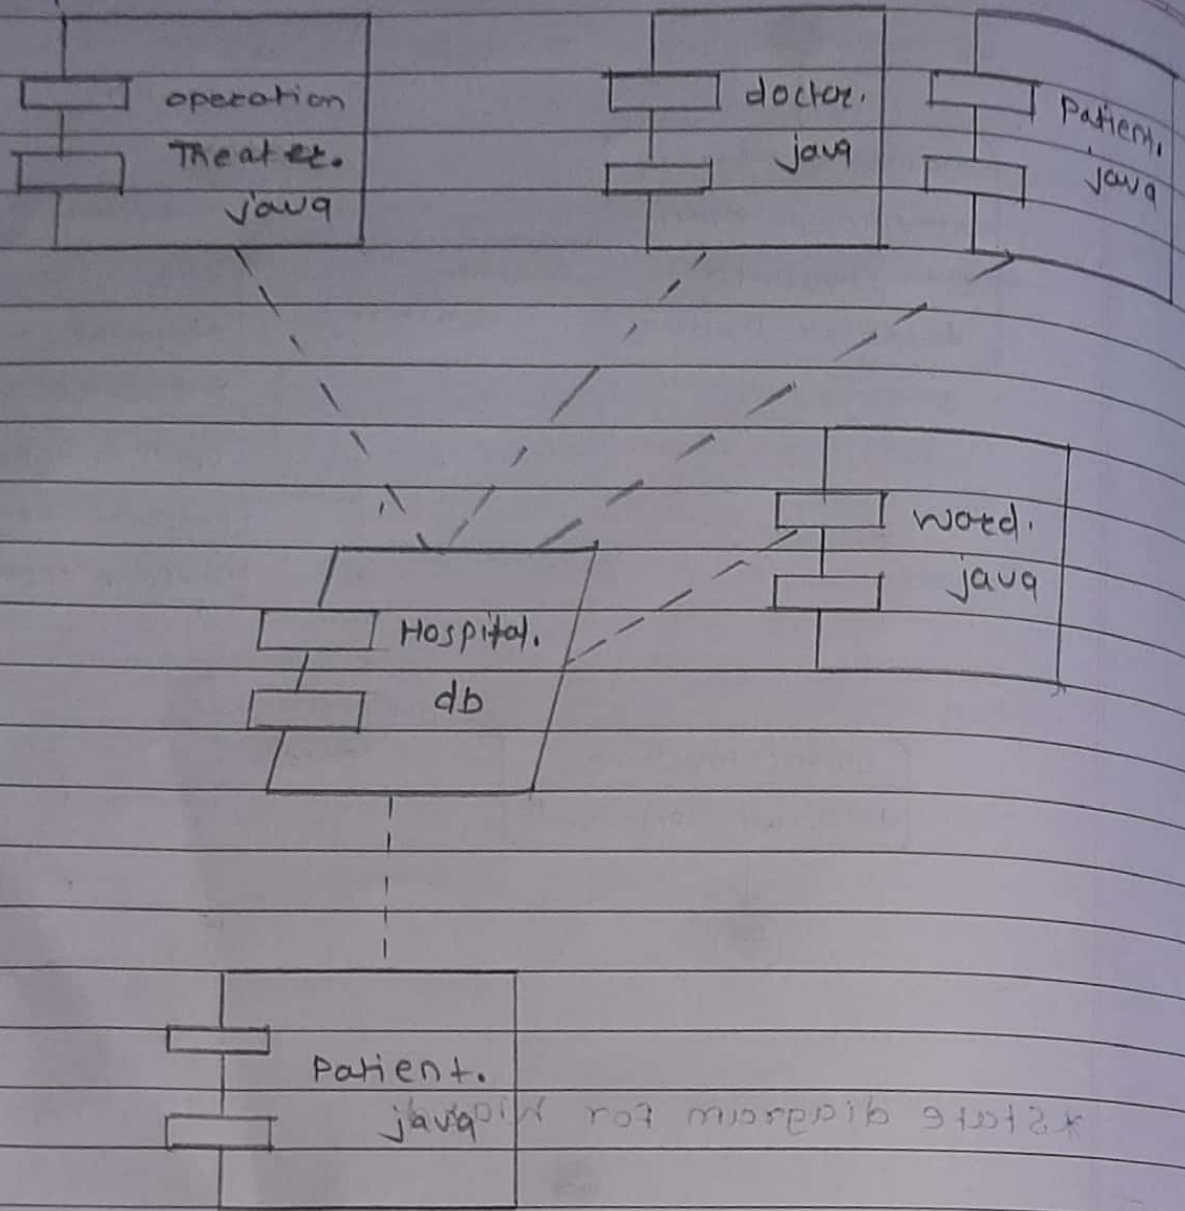 operation
Theater.
java
doctor.
java
Patient.
java
ward.
java
Hospital.
db
Patient.
java
*State diagram for